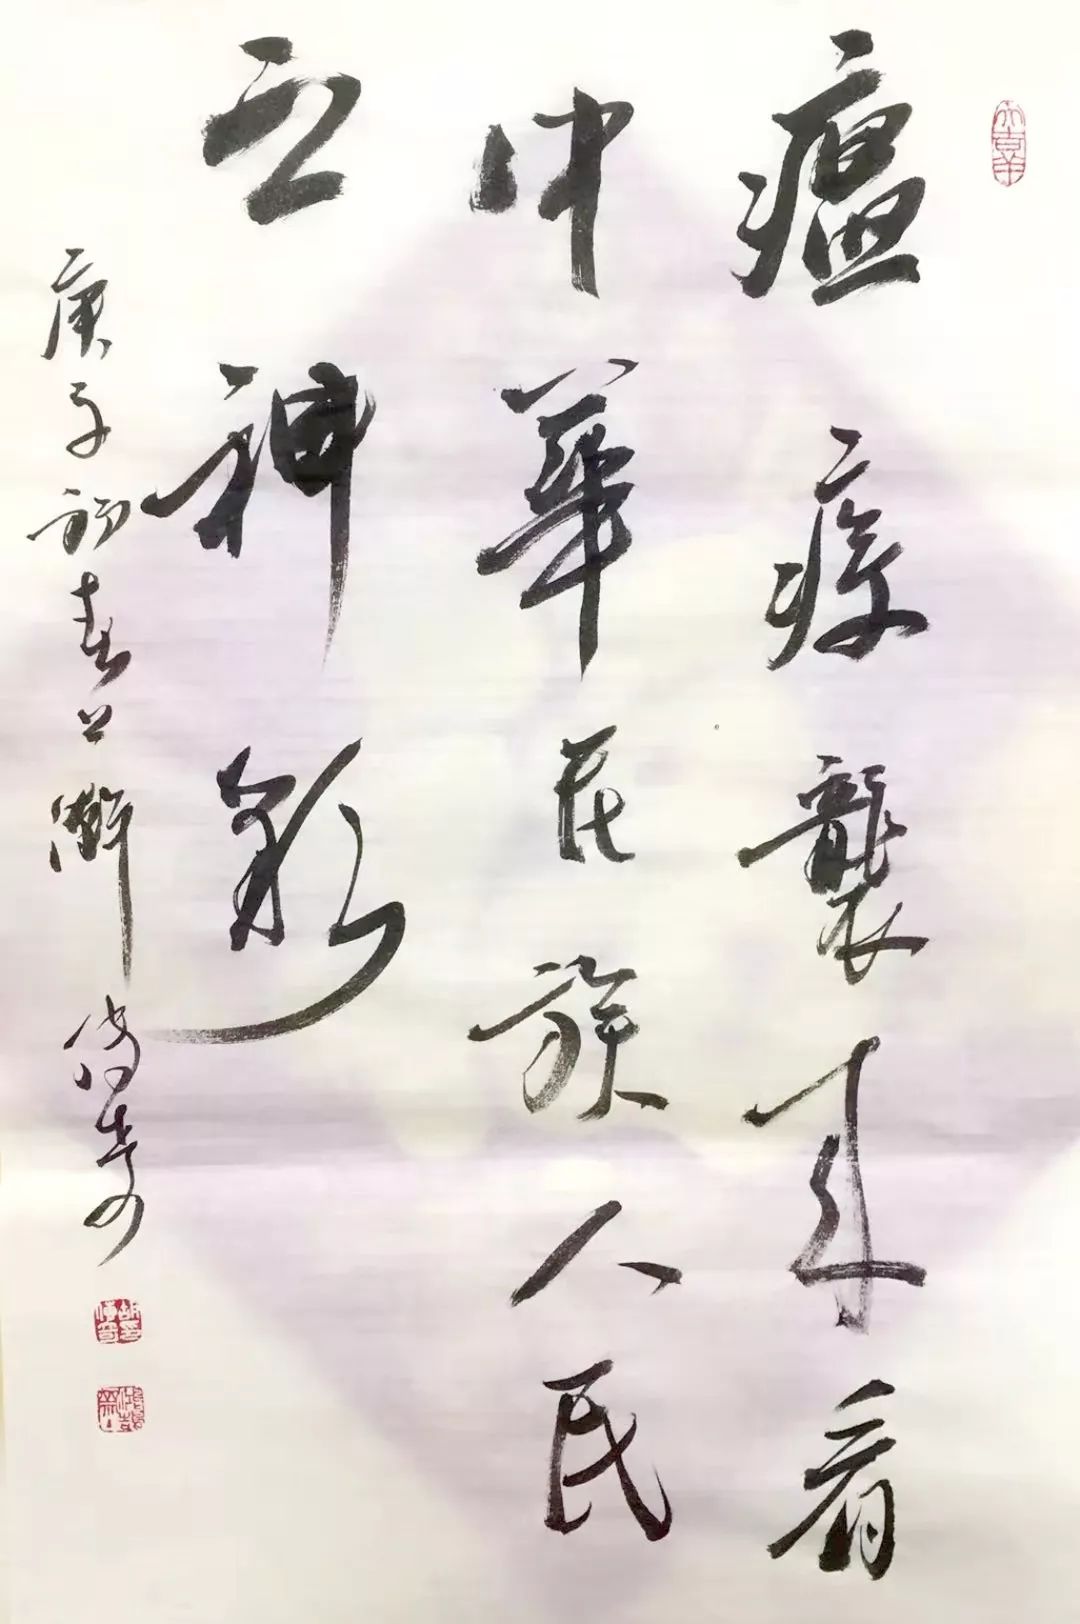 瘟疫襲来看
中華民族人民
之神彩
庚子初春上澣